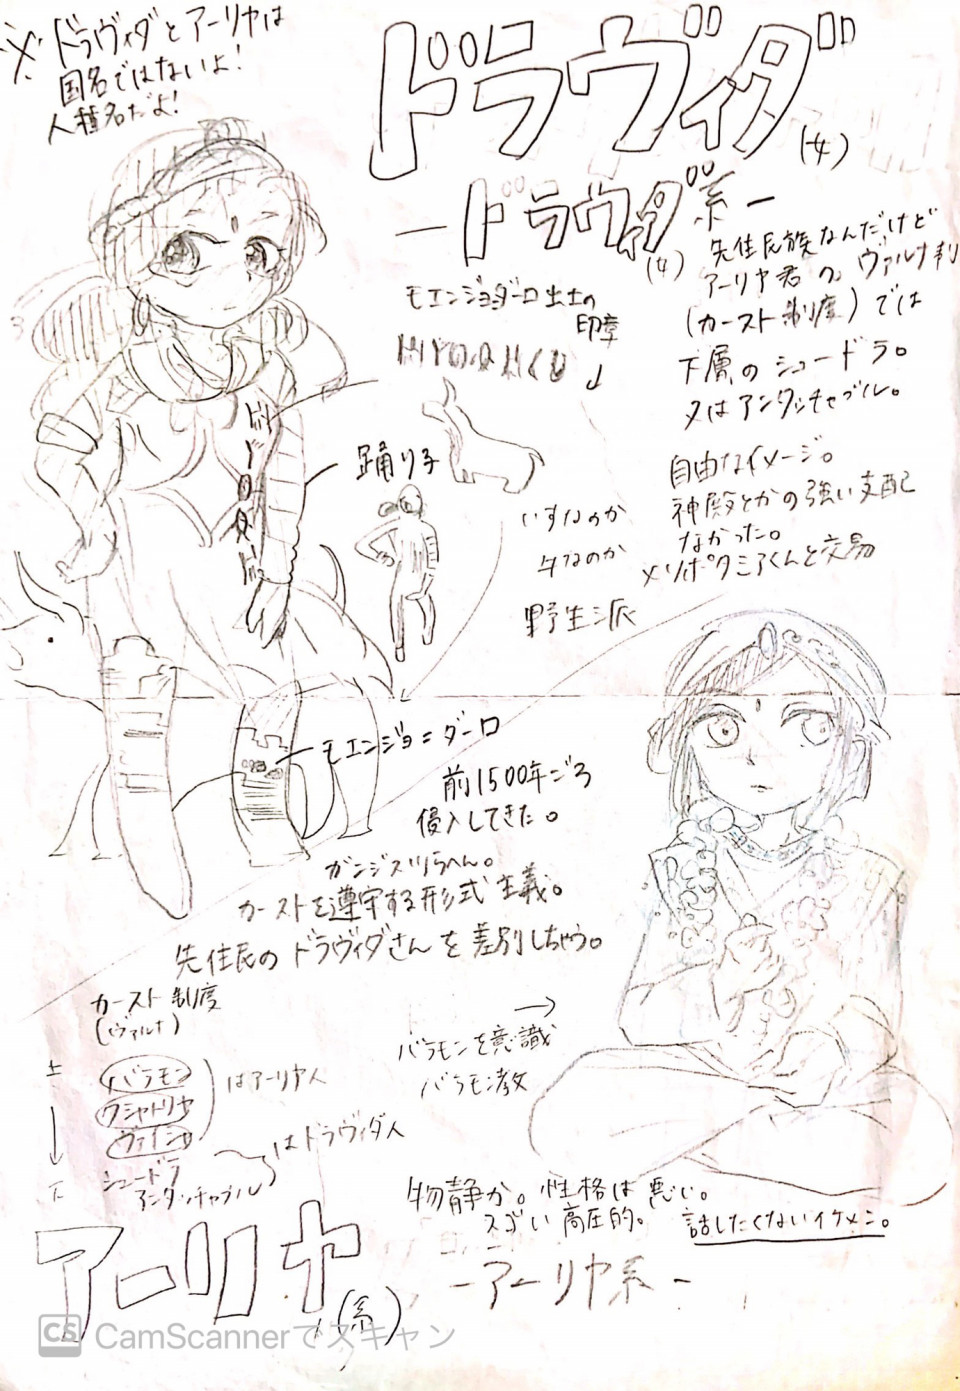 ※ドラヴィダとアーリヤは
国名ではないよ!
人種名だよ!
ドラヴィダ
(女)
ードラヴィダ系ー
(女)
先住民族なんだけど
アーリヤ君の、ヴァルナ制
(カースト制度)では
下層のシュードラ。
又はアンタッチャブル。
モエンジョダーロ出土の
印章
↓
踊り子
自由なイメージ。
神殿とかの強い支配
なかった。
メソポタミアくんと交易
いすなのか
牛なのか
野生派
モエンジョ=ダーロ
前1500年ごろ
侵入してきた。
ガンジス川らへん。
カーストを遵守する形式主義。
先住民のドラヴィダさんを差別しちゃう。
カースト制度
(ヴァルナ)
上
↓
下
バラモン
クシャトリヤ
ヴァイシャ
はアーリヤ人
シュードラ
アンタッチャブル
はドラヴィダ人
→
バラモンを意識
バラモン教
物静か。性格は悪い。
スゴい高圧的。
話したくないイケメン。
アーリヤ
(系)
-アーリヤ系-
CS CamScannerでスキャン